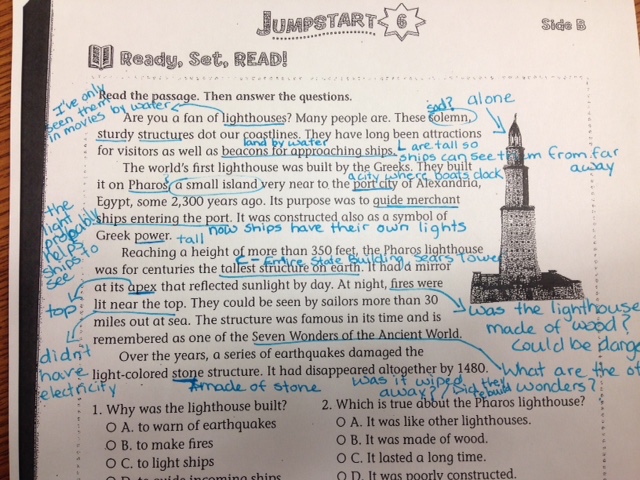 JUMPSTART 6
Side B
Ready, Set, READ!
Read the passage. Then answer the questions.
I've only
seen them
in movies
by water
sad?
alone
Are you a fan of lighthouses? Many people are. These solemn,
sturdy structures dot our coastlines. They have long been attractions
land by water
for visitors as well as beacons for approaching ships.
are tall so
ships can see them from far
away
The world's first lighthouse was built by the Greeks. They built
a city where boats dock
it on Pharos, a small island very near to the port city of Alexandria,
Egypt, some 2,300 years ago. Its purpose was to guide merchant
ships entering the port. It was constructed also as a symbol of
now ships have their own lights
Greek power.
the
light
probably
helps
ships to
see
tall
Reaching a height of more than 350 feet, the Pharos lighthouse
C - Empire State Building, sears tower
was for centuries the tallest structure on earth. It had a mirror
at its apex that reflected sunlight by day. At night, fires were
top
lit near the top. They could be seen by sailors more than 30
was the lighthouse
made of wood?
could be
miles out at sea. The structure was famous in its time and is
remembered as one of the Seven Wonders of the Ancient World.
What are the
wonders?
didn't
have
electricity
Over the years, a series of earthquakes damaged the
light-colored stone structure. It had disappeared altogether by 1480.
made of stone
was it wiped
away?? Did they
rebuild
1. Why was the lighthouse built?
A. to warn of earthquakes
B. to make fires
C. to light ships
D. to guide incoming ships
2. Which is true about the Pharos lighthouse?
A. It was like other lighthouses.
B. It was made of wood.
C. It lasted a long time.
D. It was poorly constructed.